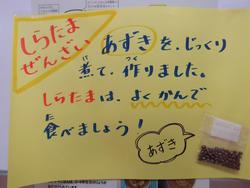 しらたま
ぜんざい
あずきを、じっくり
煮て、作りました。
しらたまは、よくかんで
食べましょう!
あずき